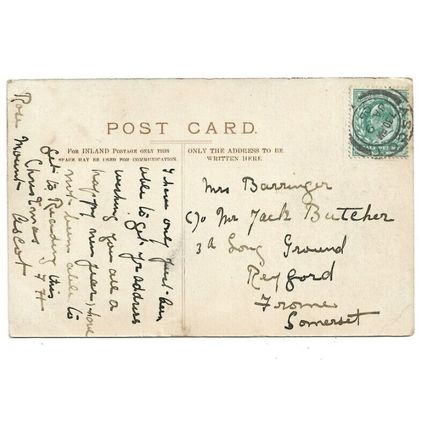 POST CARD.
FOR INLAND POSTAGE ONLY THIS
SPACE MAY BE USED FOR COMMUNICATION.
ONLY THE ADDRESS TO BE
WRITTEN HERE.
I have only just been
able to get yr address
wishing you all a
happy new year, have
not been able to
get to Reading this
Christmas
Rose Mount Ascot
Mrs Barringer
C/o Mr Jack Butcher
3d Long Ground
Keyford
Frome
Somerset